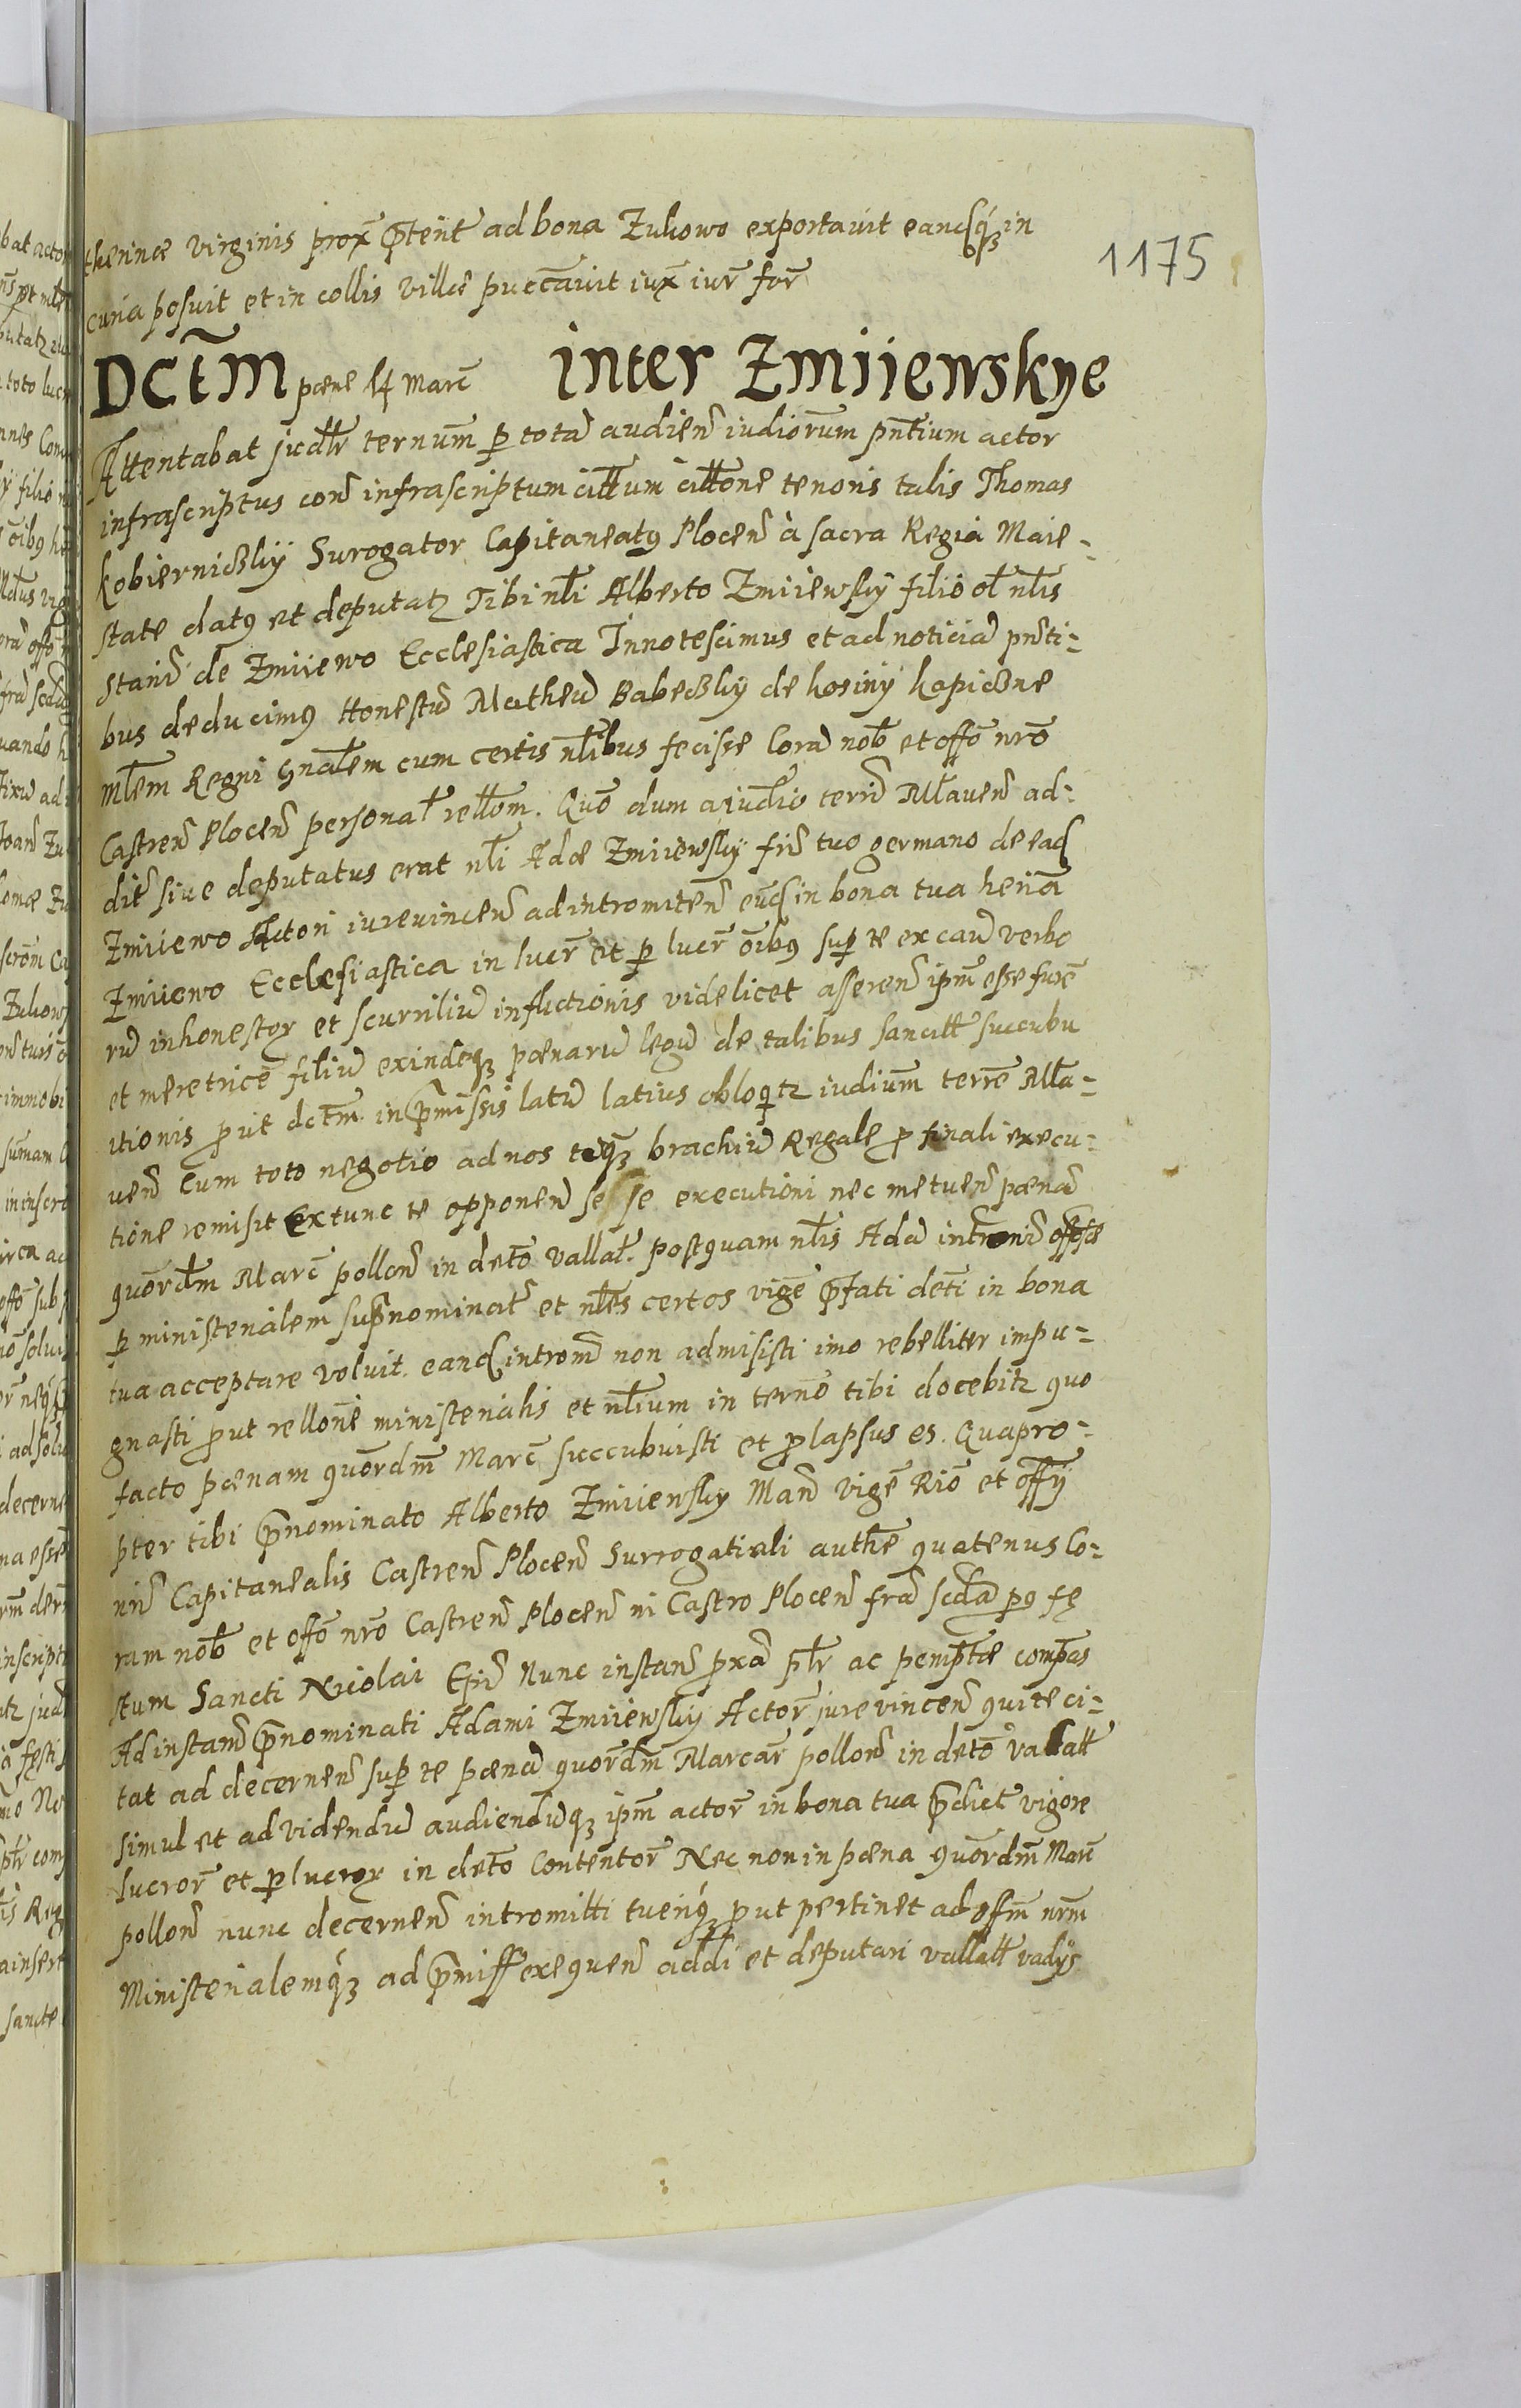 therinæ virginis prox p̄tent ad bona Zukowo exportavit eandq́ʒ in
1175
curia posuit et in collis villæ puccāvit iux̄ iur̄ for̄
Dct̄m pœne 14 Marc̄ inter Zmijewskye
Attentabat judlr̄ ternum̄ p totā audien̄ iudiorum̄ pn̄tium actor
infrascriptus con̄ infrascriptum citt̄um citt̄one tenoris talis Thomas
Kobierniczky Surogator Capitaneatꝯ Plocen̄ à sacra Regia Maie-
state datꝯ et deputatꝫ Tibi nl̄i Alberto Zmijewsky filio ol̄ nl̄is
Stanis̄ de Zmijewo Ecclesiastica Innotescimus et ad noticiā pn̄ti-
bus deducimꝯ Honestū Matheū Babeczky de Kosiny Kapiczne
ml̄em Regni gn̄alem cum certis nl̄ibus fecisse Corā nob̄ et off̄o nr̄o
Castren̄ Plocen̄ personal̄ rell̄om. Quō dum a iudio terr̄ Mlaven̄ ad-
dit̄ sive deputatus erat nl̄i Adæ Zmijewsky fr̄i tuo germano de ead
Zmijewo Actori iurevincen̄ ad intromiten̄ eund in bona tua heria
Zmijewo Ecclesiastica in lucr̄ et p lucr̄ oībꝯ sup te ex caū verbo
rū inhonestoꝝ et scurriliū inflictionis videlicet asseren̄ ipm̄ esse fure
et meretricē filiū exindeqꝫ pœnarū legū de talibus sancitt̄ succubu
itionis prout dct̄m in p̄missis latū latius obloqitꝫ iudium̄ terræ Mla-
ven̄ Cum toto negotio ad nos tqꝫ brachiū Regale pro finali execu-
tione remisit Extunc te opponen̄ sesse executioni nec metuen̄ pœnā
quōrdm̄ Marc̄ pollon̄ in detō vallat̄. postquam nl̄is Adā
p ministerialem supranominat̄ et nl̄es certos vigē p̄fati deti in bona
tua acceptare voluit. eand introm̄ non admisisti imo rebelliter impu-
gnasti prout rellonē ministerialis et nl̄ium in ternō tibi docebitꝫ quo
facto pœnam quōrdm̄ Marc̄ succubuisti et prolapsus es. Quapro-
pter tibi p̄nominato Alberto Zmijewsky Man̄ vigē Rīo et offij
nr̄i Capitanealis Castren̄ Plocen̄ Surrogatiali authe quatenus Co-
ram nob̄ et off̄o nr̄o Castren̄ Plocen̄ in Castro Plocen̄ fr̄ā scd̄ā po fę
stum Sancti Nicolai Ep̄i Nunc instan̄ prox̄ā ptr̄ ac pempt̄æ compas
Ad instan̄ p̄nominati Adami Zmijewsky Actor̄ jurevincen̄ qui te ci-
tat ad decernen̄ sup te pœnā quōrdm̄ Marcar̄ pollon̄ in detō vallatt̄
simul et ad videndū audiendūqꝫ ipm̄ actor̄ in bona tua p̄dict̄ vigore
lucror̄ et plucroꝝ in detō Contentor̄ Nec non in pœna quōrdm̄ Marc̄
pollon̄ nunc decernen̄ intromitti tueriqꝫ prout pertinet ad offm̄ nrm̄
Ministerialemqꝫ ad p̄miss exequen̄ addi et deputari vallatt̄ vadijs